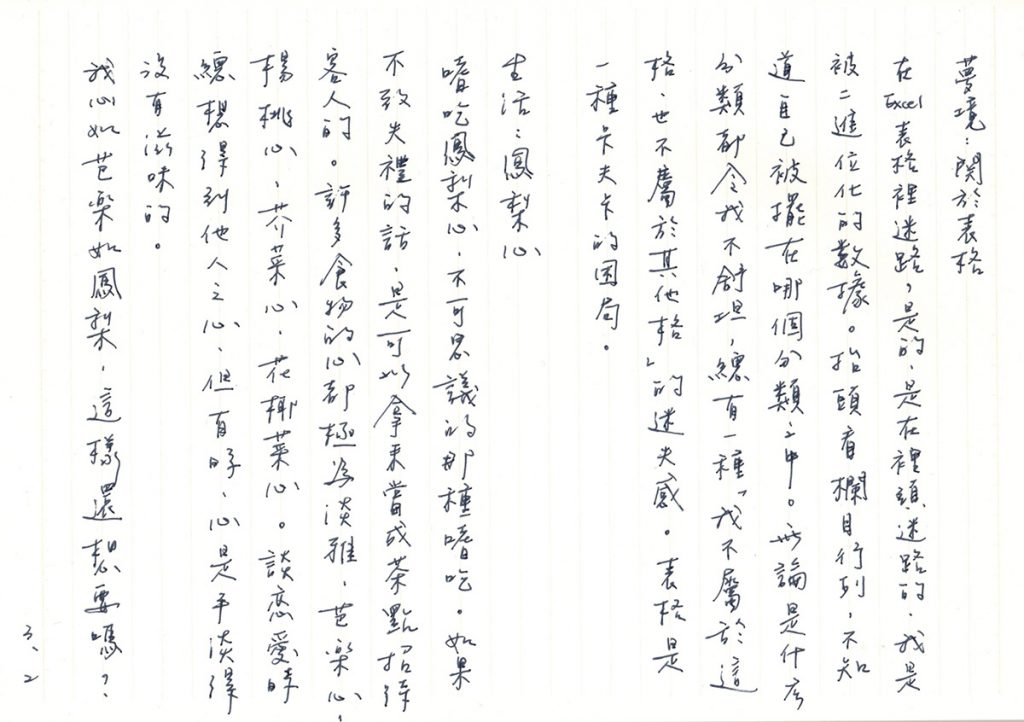 夢境：關於表格
在Excel表格裡迷路，是的，是在裡頭迷路的，我是
被二進位化的數據。抬頭看欄目行列，不知
道自己被擺在哪個分類之中。無論是什麼
分類都令我不舒坦，總有一種「我不屬於這
格，也不屬於其他格」的迷失感。表格是
一種卡夫卡的困局。
生活：鳳梨心
嗜吃鳳梨心，不可思議的那種嗜吃。如果
不致失禮的話，是可以拿來當成茶點招待
客人的。許多食物的心都極為淡雅，芭樂心，
楊桃心，芥菜心，花椰菜心。談戀愛時
總想得到他人之心，但有時，心是平淡得
沒有滋味的。
我心如芭樂如鳳梨，這樣還想要嗎？
3.2